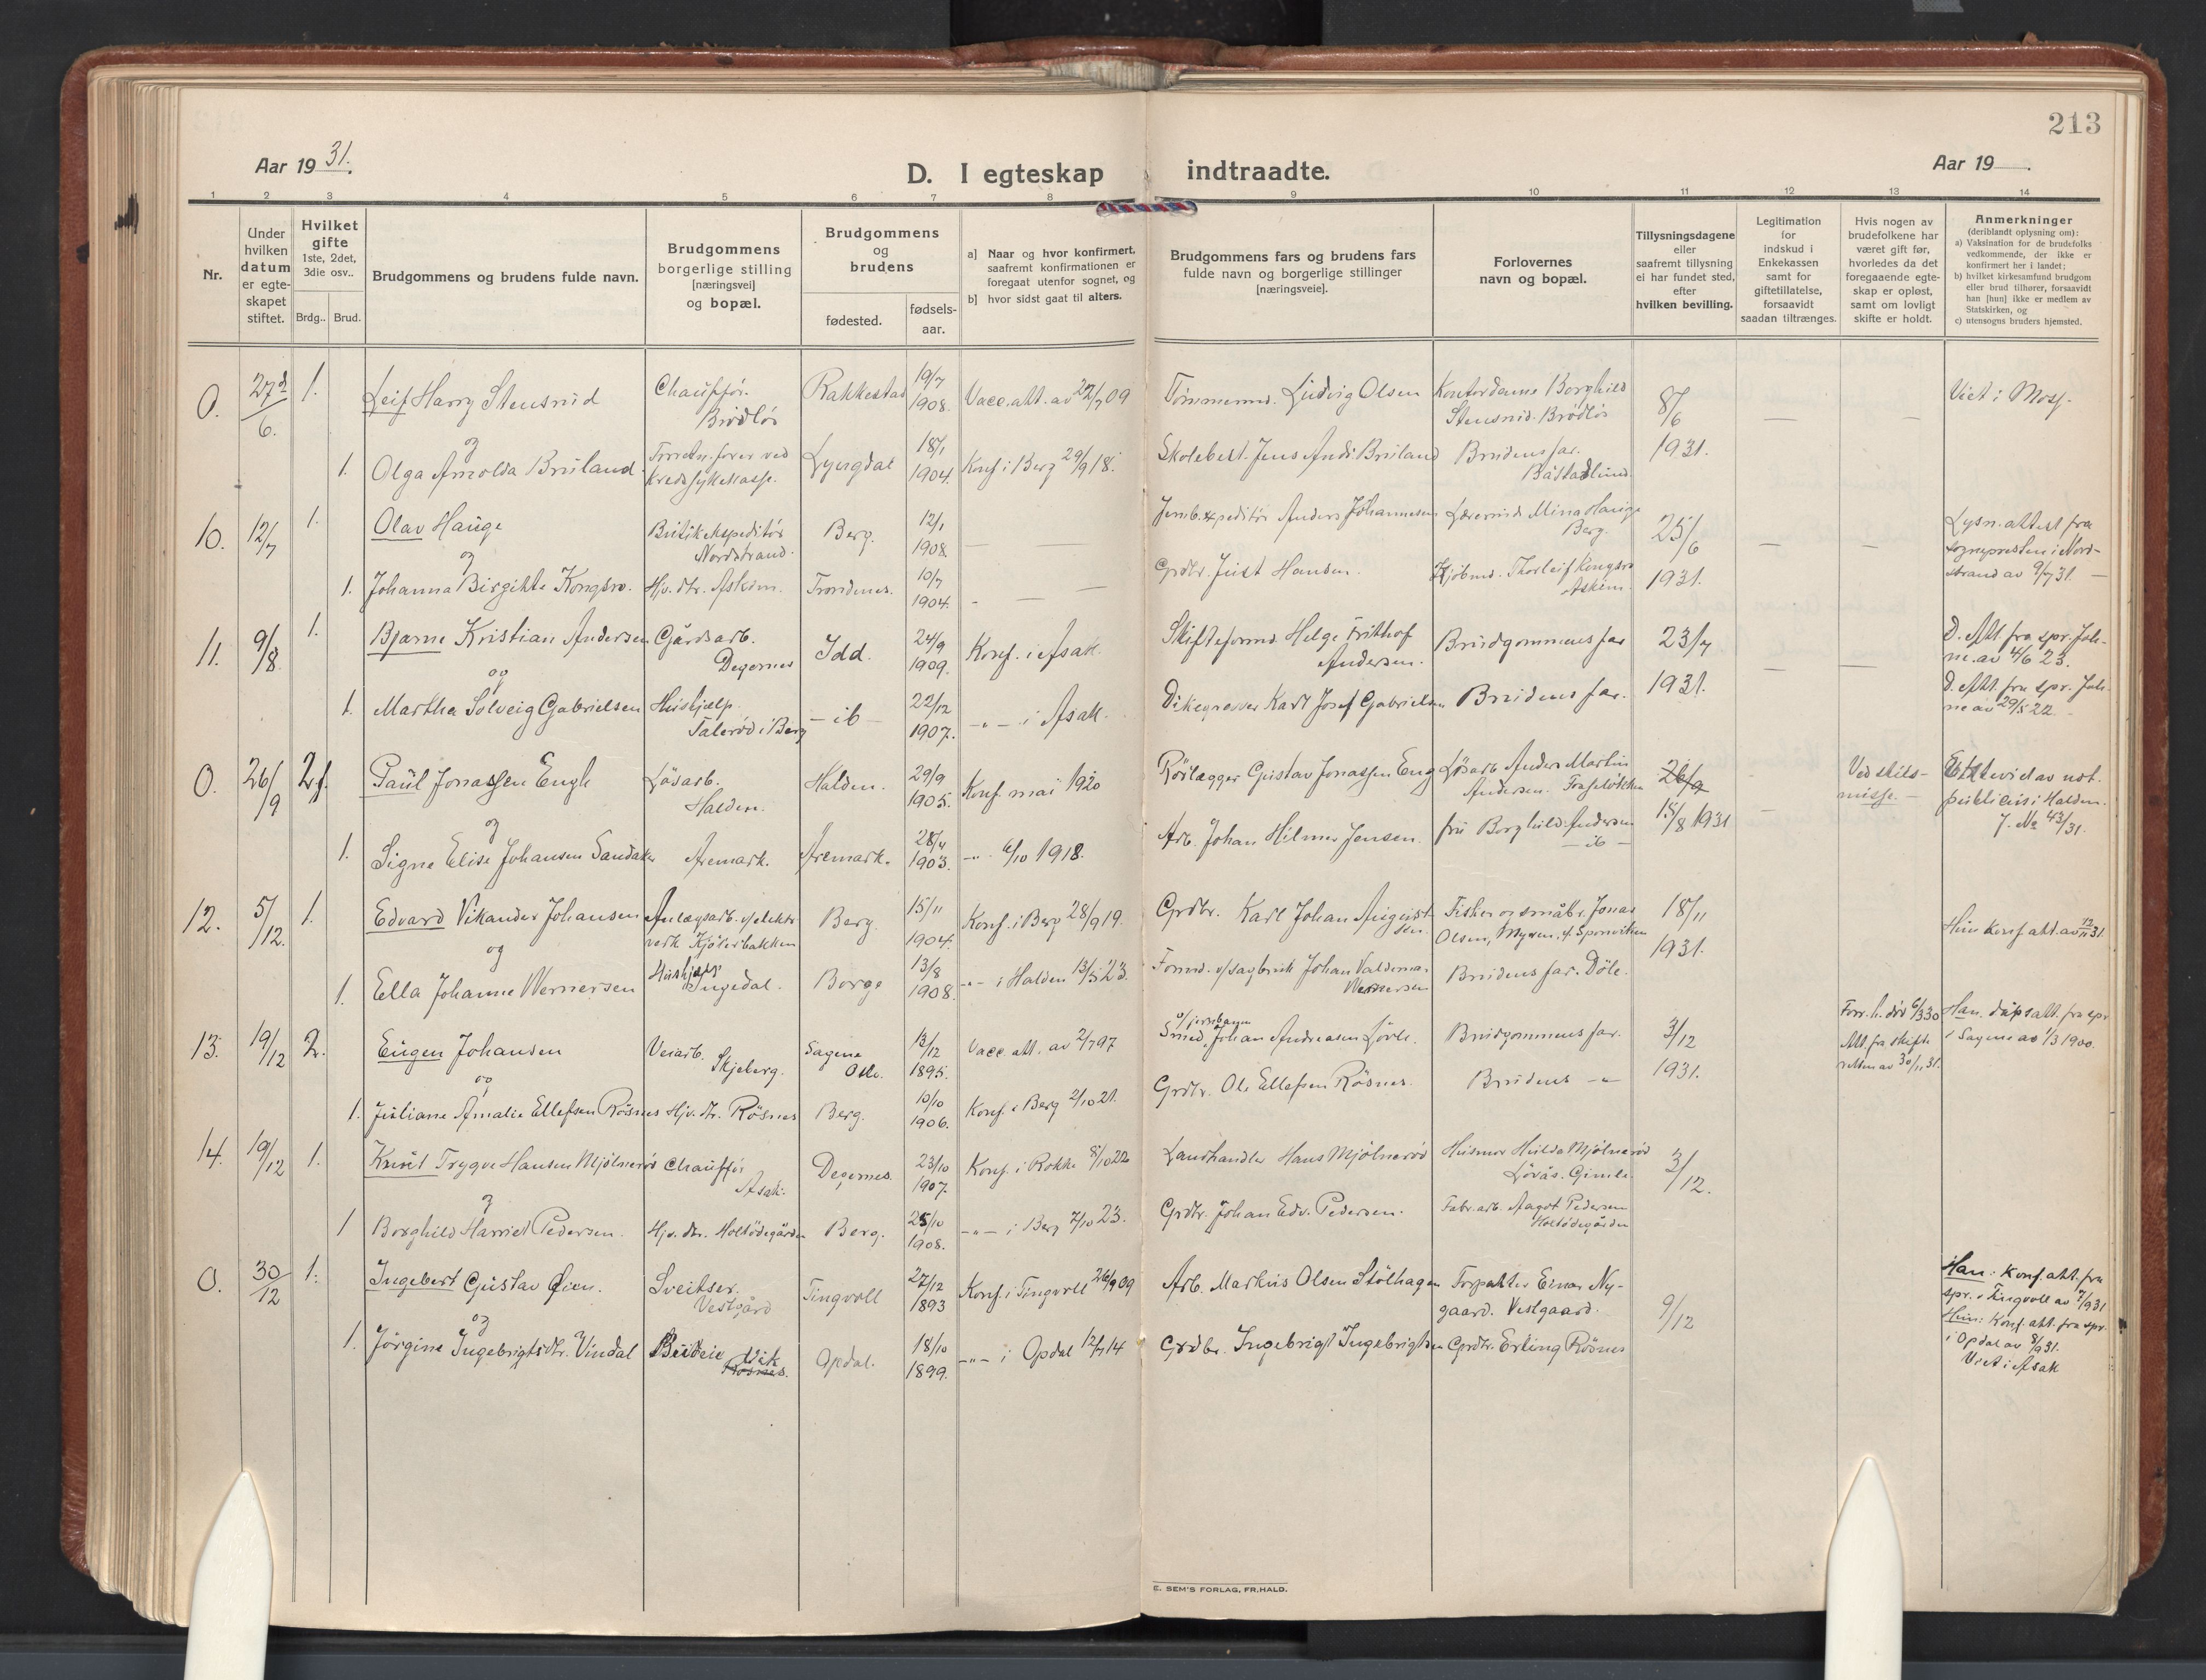 213
Aar 19 31.
D. I egteskap indtraadte.
Aar 19
1 2 3 4 5 6 7 8 9 10 11 12 13 14
Nr.
Under
hvilken
datum
er egte-
skapet
stiftet.
Hvilket
gifte
1ste, 2det,
3die osv..
Brdg.. Brud.
Brudgommens og brudens fulde navn.
Brudgommens
borgerlige stilling
[næringsvei]
og bopæl.
Brudgommens
og
brudens
fødested.
fødsels-
aar.
a] Naar og hvor konfirmert.
saafremt konfirmationen er
foregaat utenfor sognet, og
b] hvor sidst gaat til alters.
Brudgommens fars og brudens fars
fulde navn og borgerlige stillinger
[næringsveie].
Forlovernes
navn og bopæl.
Tillysningsdagene
eller
saafremt tillysning
ei har fundet sted,
efter
hvilken bevilling.
Legitimation
for
indskud i
Enkekassen
samt for
giftetillatelse,
forsaavidt
saadan tiltrænges.
Hvis nogen av
brudefolkene har
været gift før,
hvorledes da det
foregaaende egte-
skap er opløst,
samt om lovligt
skifte er holdt.
Anmerkninger
(deriblandt oplysning om):
a) Vaksination for de brudefolks
vedkommende, der ikke er
konfirmert her i landet;
b) hvilket kirkesamfund brudgom
eller brud tilhører, forsaavidt
han [hun] ikke er medlem av
Statskirken, og
c) utensogns bruders hjemsted.
0. 27d/6. 1. Leif Harry Stensrud
Chauffør.
Brödlös
Rakkestad 19/7 1908. Vacc. att. av 22/7 09
Tömmermd. Ludvig Olsen
Kontordame Borghild
Stensrud. Brödlös
8/6
1931.
Viet i Moss.
og
1. Olga Arnolda Bruland.
Kredssykekasse.
Lyngdal 18/1 1904. Konf. i Berg 29/9 18.
Skolebest. Jens Andr. Bruland
Brudens far.
Båstadlund.
10. 12/7 1. Olav Hauge
Butikekspeditör
Nordstrand.
Berg. 12/1 1908.
Jernb. expeditör Anders Johannesen
Mina Hauge
Berg.
25/6
1931.
Lysn. attest fra
sognepresten i Nord-
strand av 9/7 31.
og
1. Johanna Birgitte Kongsro.
Hjv. dtr. Askim.
Trondenes. 10/7 1904.
Grdbr. Just Hansen.
Kjöbmd. Thorleif Kongsro
Askim.
11. 9/8. 1. Bjarne Kristian Andersen
Gårdsarb.
Degernes
Idd. 24/9 1909. Konf. i Asak.
Skifteformd. Helge Frithof
Andersen.
Brudgommens far
23/7
1931.
D. Att. fra spr. Joh-
ne. av 4/6 23.
og
1. Martha Solveig Gabrielsen
Hushjælp
i Berg
- ib - 22/12 1907. -"- i Asak.
Dikegraver Karl Josef Gabrielsen
Brudens far.
D. Att. fra spr. Joh-
ne av 29/5 22.
0. 26/9 2. Paul Jonassen Engh
Lösarb.
Halden.
Halden. 29/9 1905. Konf. mai 1920
Rörlægger Gustav Jonassen Eng
Lösarb. Anders Martin
Andersen.
26/9
15/8 1931
Ved skils-
misse. -
viet av not.
publicus i Halden.
J. No 43/31.
og
1. Signe Elise Johansen Sandaker
Aremark.
Aremark. 28/4 1903. -"- 6/10 1918.
Arb. Johan Hilmer Jensen.
fru Borghild Andersen
- ib -
12. 5/12. 1. Edvard Vikander Johansen
Anlægsarb. v/elektr.
verk Kjökerbakken
Berg. 15/11 1904. Konf. i Berg 28/9 19.
Grdbr. Karl Johan August-
sen.
Fisker og småbr. Jonas
Olsen, Myren, p. Sponviken
18/11
1931.
Hun Konf. att. av 12/11 31.
og
1. Ella Johanne Wernersen
Hushjælp
Ingedal.
Borge 13/8 1908. -"- i Halden 13/5 23.
Formd. v/sagbruk Johan Valdemar
Wernersen
Brudens far. Döle.
13. 19/12 2. Eugen Johansen
Veiarb.
Skjeberg.
Sagene
Oslo.
13/12 1895. Vacc. att. av 2/7 97
v/jernbanen
Smed, Johan Andreasen Lövli.
Brudgommens far.
3/12
1931.
Forr. h. död 6/3 30
Att. fra skifte-
retten av 30/11 31.
Han. dåpsatt. fra spr.
i Sagene av 1/3 1900.
og
1. Juliane Amalie Ellefsen Rösnes
Hjv. dtr. Rösnes
Berg. 10/10 1906. Konf. i Berg 2/10 21.
Grdbr. Ole Ellefsen Rösnes.
Brudens -"-
14. 19/12 1. Knut Trygve Hansen Mjölneröd
Chauffør
Asak.
Degernes. 23/10 1907. Konf. i Rokke 8/10 22
Landhandler Hans Mjölneröd
Husmor Hulda Mjölneröd
Löväs. Gimle.
3/12.
og
1 Borghild Harriet Pedersen.
Hjv. dtr. Holtödegården
Berg. 25/10 1908. -"- i Berg 7/10 23.
Grdbr. Johan Edv. Pedersen.
Fabr. arb. Aagot Pedersen
Holtödegården
0. 30/12 1. Ingebert Gustav Øien.
Sveitser.
Vestgård
Tingvoll 27/12 1893 Konf. i Tingvoll 26/9 09
Arb. Markus Olsen Stölhagen
Forpakter Einar Ny-
gaard. Vestgaard.
9/12
Han: Konf. att. fra
spr. i Tingvoll av 7/9 31
og
1. Jörgine Ingebrigtsdtr. Vindal
Budeie Vik
Rösnes.
Opdal. 18/10 1899. -"- i Opdal 12/7 14
Grdbr. Ingebrigt Ingebrigtsen
Grdbr. Erling Rösnes
Hun: Konf. att. fra spr.
i Opdal av 8/9 31.
Viet i Asak
E. SEM'S FORLAG, FR.HALD.